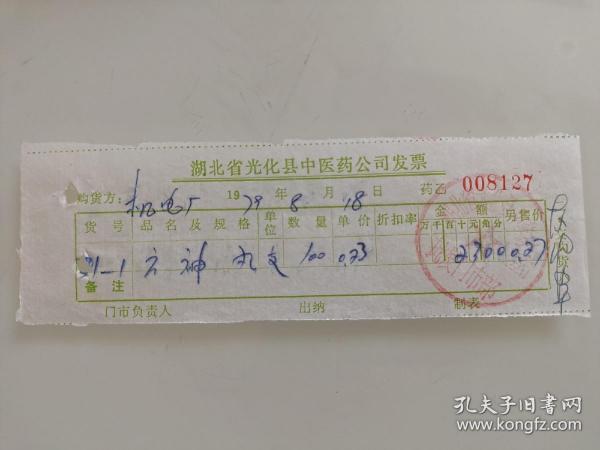 湖北省光化县中医药公司发票
购货方：机电厂 1979年8月18日 药乙 008127
货号 品名及规格 单位 数量 单价 折扣率 金额 另售价
万千百十元角分
51-1 六神丸 支 100 0.23 2300 0.27
备注
门市负责人 出纳 制表
孔夫子旧书网
www.kongfz.com